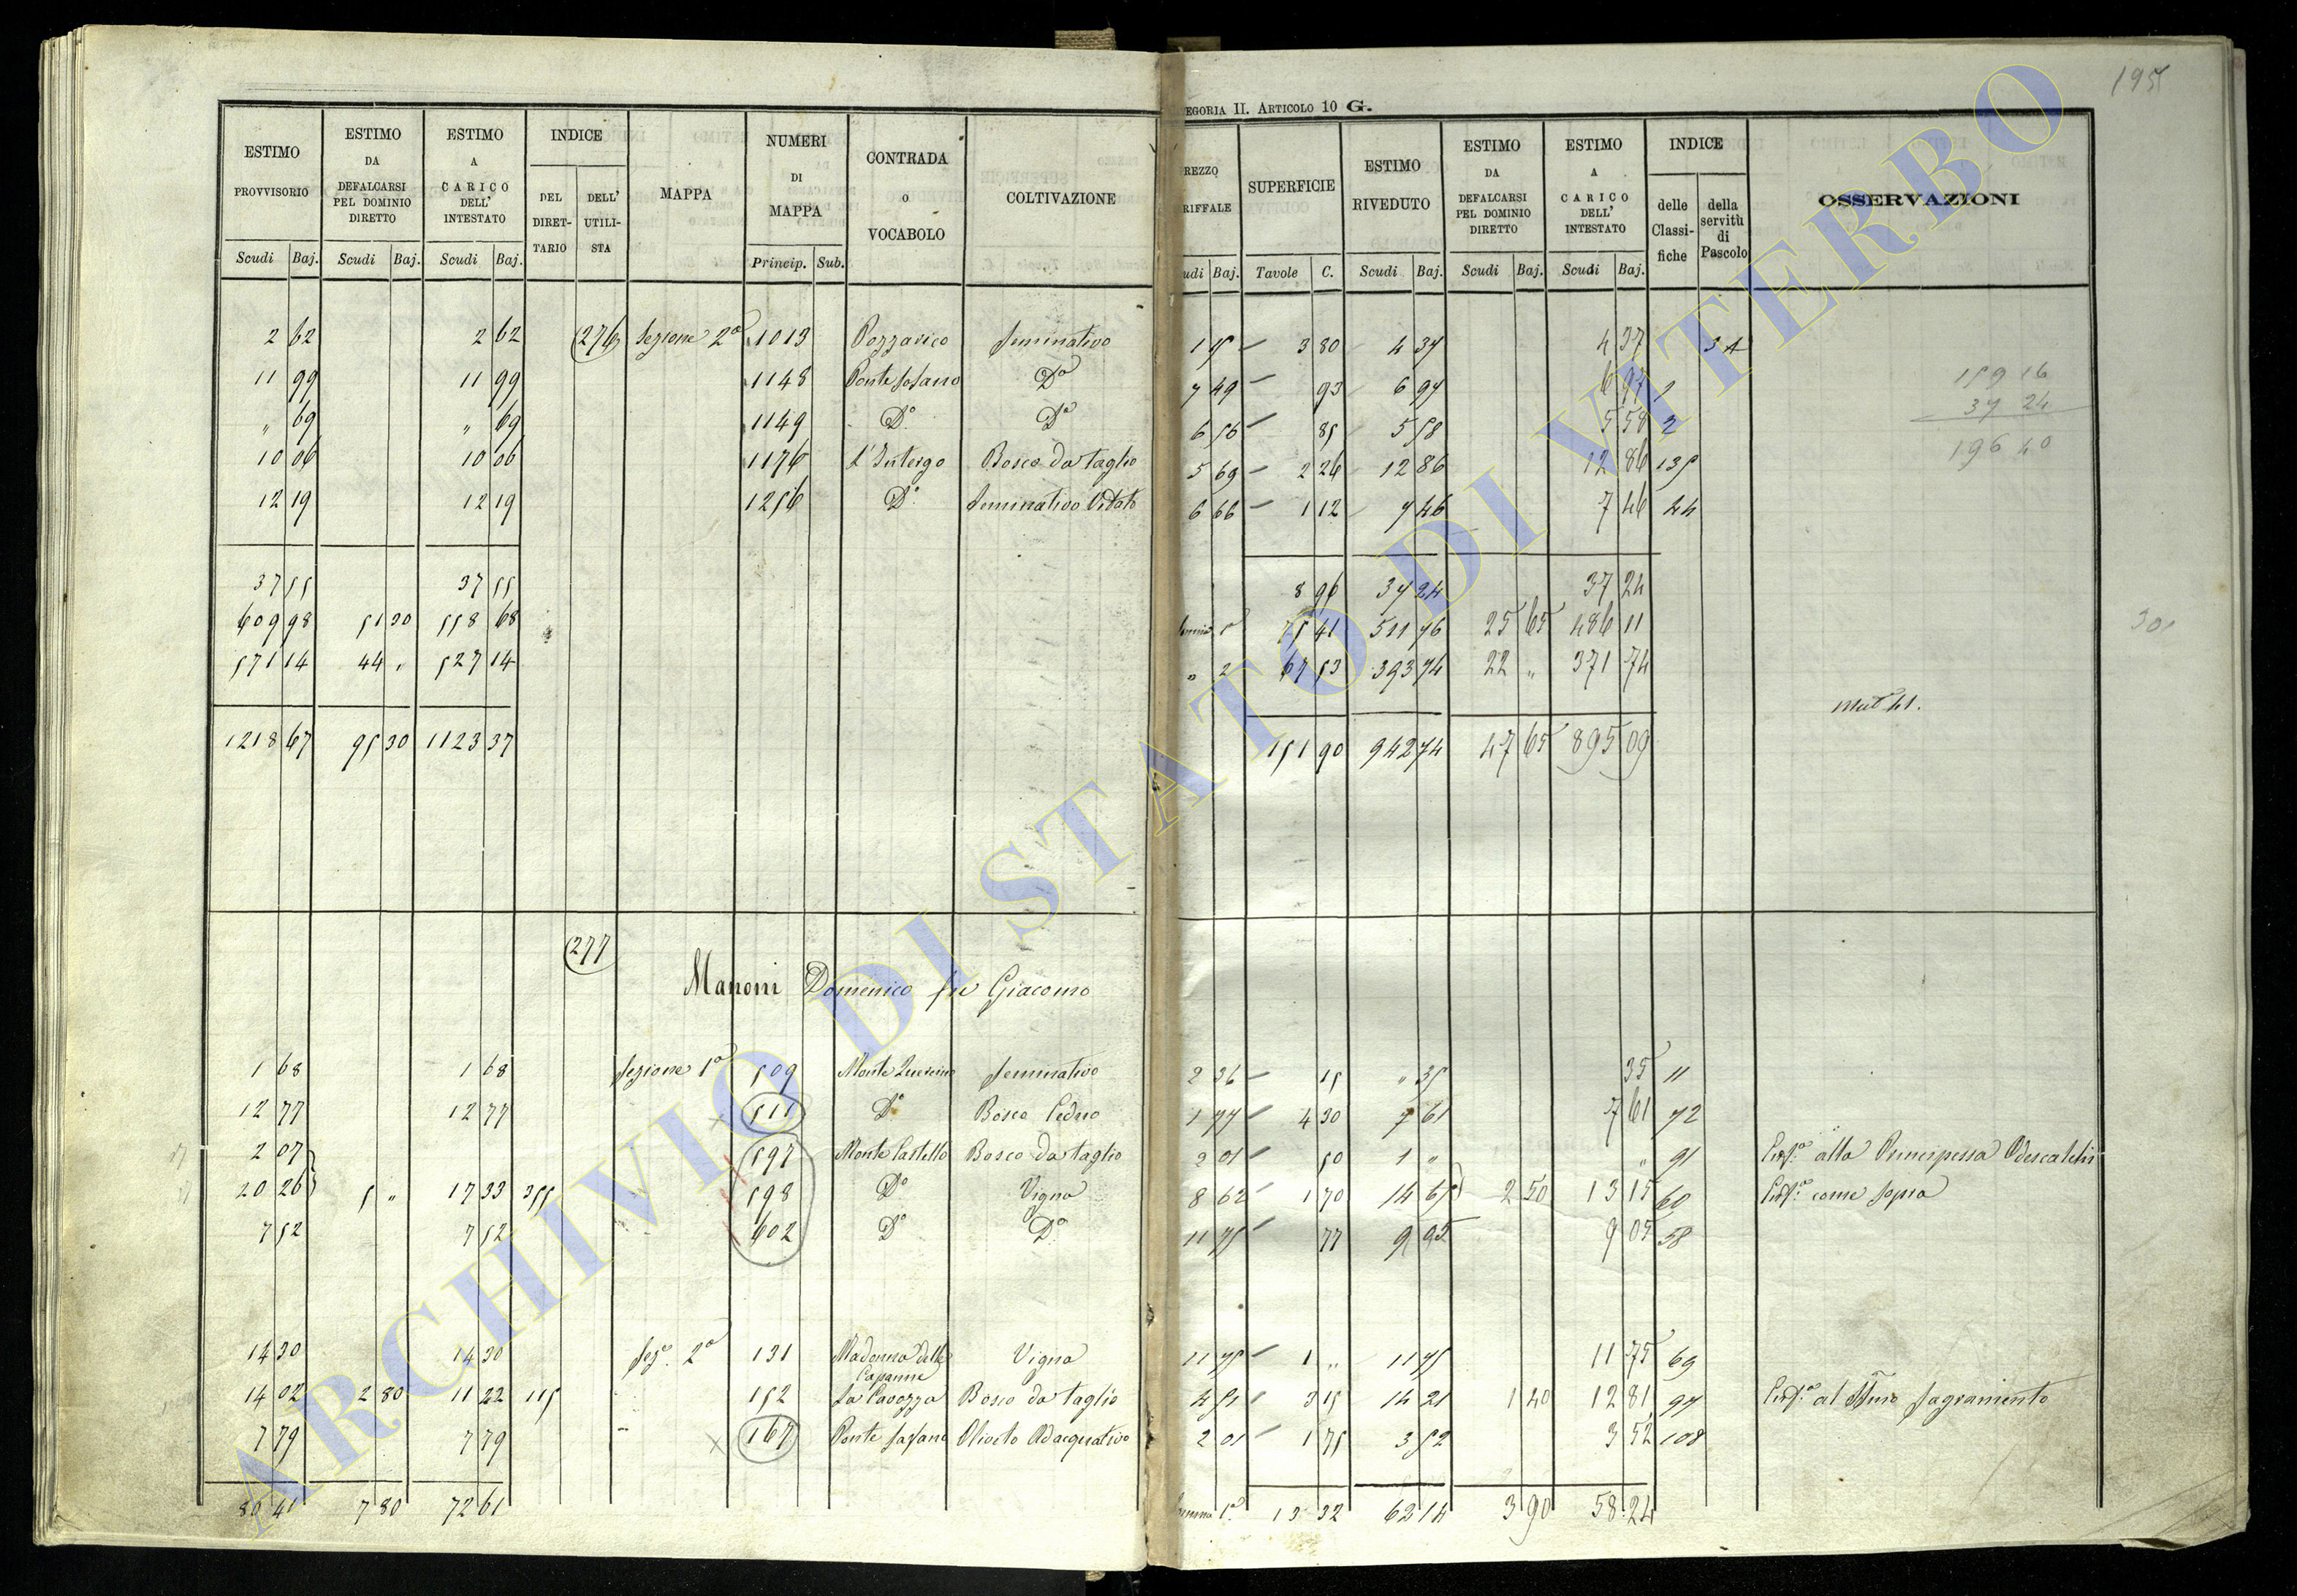 195
EGORIA II. ARTICOLO 10 G.
ESTIMO PROVVISORIO Scudi Baj. ESTIMO DA DEFALCARSI PEL DOMINIO DIRETTO Scudi Baj. ESTIMO A CARICO DELL' INTESTATO Scudi Baj. INDICE DEL DIRETTARIO DELL' UTILISTA MAPPA NUMERI DI MAPPA Princip. Sub. CONTRADA O VOCABOLO COLTIVAZIONE
REZZO RIFFALE udi Baj. SUPERFICIE Tavole C. ESTIMO RIVEDUTO Scudi Baj. ESTIMO DA DEFALCARSI PEL DOMINIO DIRETTO Scudi Baj. ESTIMO A CARICO DELL' INTESTATO Scudi Baj. INDICE delle Classifiche della servitù di Pascolo OSSERVAZIONI
2 62 2 62 276 Sezione 2a 1013 Pozzarico Seminativo 1 15 3 80 4 37 4 37
11 99 11 99 1148 Ponte Sasano Do 7 49 93 6 97 6 97 1
" 69 " 69 1149 Do Do 6 56 85 5 58 5 58 2
10 06 10 06 1176 L'Intergo Bosco da taglio 5 69 2 26 12 86 12 86 135
12 19 12 19 1256 Do Seminativo Vitato 6 66 1 12 7 46 7 46 44
159 16
37 24
196 40
37 55 37 55 8 96 37 24 37 24
609 98 51 30 558 68 75 41 511 76 25 65 486 11
301
571 14 44 " 527 14 " 2 67 53 393 74 22 " 371 74
1218 67 95 30 1123 37 151 90 942 74 47 65 895 09
277
Manoni Domenico fu Giacomo
1 68 1 68 Sezione 1a 509 Monte Seminativo 2 36 15 " 35 35 11
12 77 12 77 511 Do Bosco Ceduo 1 77 4 30 7 61 7 61 72
2 07 597 Monte Castello Bosco da taglio 2 01 50 1 " " 91 alla Principessa Odescalchi
20 26 5 " 17 33 355 598 Do Vigna 8 62 1 70 14 65 2 50 13 15 60 come sopra
7 52 7 52 602 Do Do 11 75 77 9 05 58
14 30 14 30 Sez. 2a 131 Madonna delle Capanne Vigna 11 75 1 " 11 75 11 75 69
14 02 2 80 11 22 115 152 La Cavozza Bosco da taglio 4 51 3 15 14 21 1 40 12 81 97 al Ssmo Sagramento
7 79 7 79 167 Ponte Sassano Oliveto Adacquativo 2 01 1 75 3 52 3 52 108
80 41 7 80 72 61 Somma 1a 13 32 62 14 3 90 58 24
ARCHIVIO DI STATO DI VITERBO